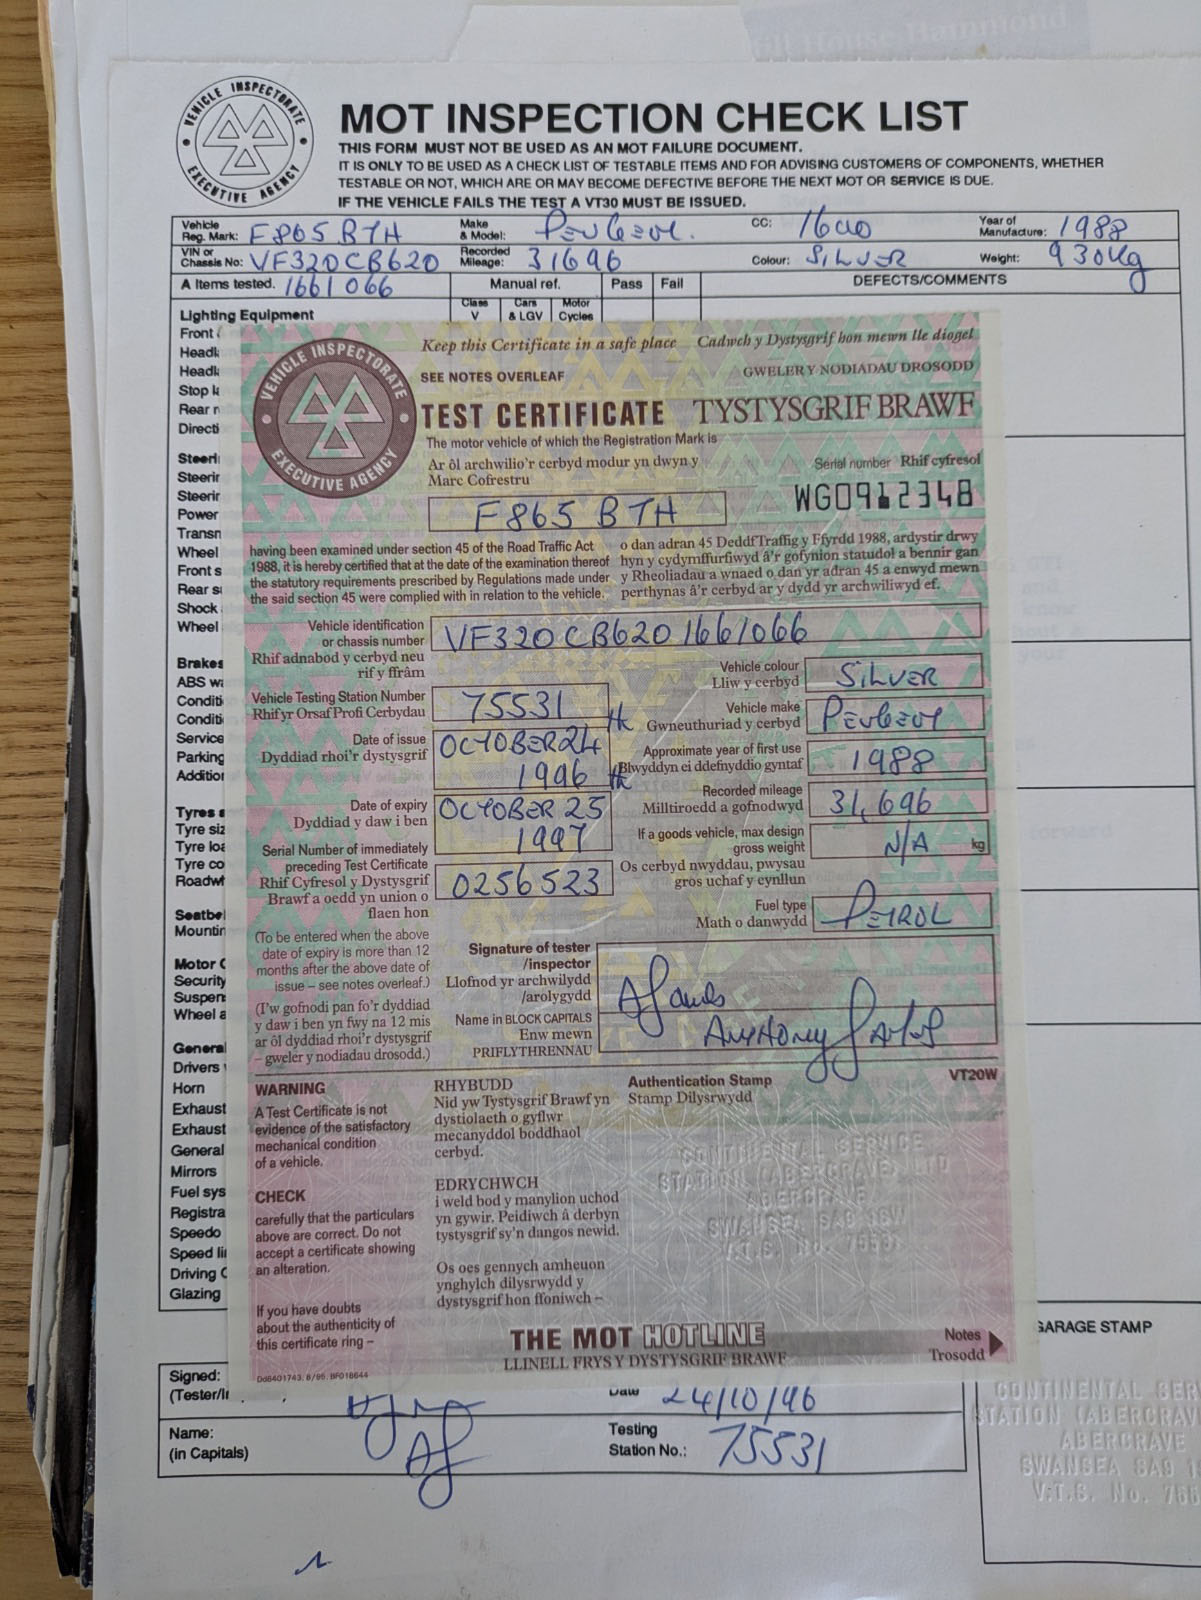 ill House Hammond
VEHICLE INSPECTORATE
EXECUTIVE AGENCY
MOT INSPECTION CHECK LIST
THIS FORM MUST NOT BE USED AS AN MOT FAILURE DOCUMENT.
IT IS ONLY TO BE USED AS A CHECK LIST OF TESTABLE ITEMS AND FOR ADVISING CUSTOMERS OF COMPONENTS, WHETHER
TESTABLE OR NOT, WHICH ARE OR MAY BECOME DEFECTIVE BEFORE THE NEXT MOT OR SERVICE IS DUE.
IF THE VEHICLE FAILS THE TEST A VT30 MUST BE ISSUED.
Vehicle Reg. Mark: F865 BTH Make & Model: PEUGEOT. CC: 1600 Year of Manufacture: 1988
VIN or Chassis No: VF320CB620 Recorded Mileage: 31696 Colour: SILVER Weight: 930kg
A Items tested. 1661066 Manual ref. Pass Fail DEFECTS/COMMENTS
Class V Cars & LGV Motor Cycles
Lighting Equipment
Front
Headl
Headl
Stop l
Rear r
Directi
Steeri
Steerin
Steerin
Power
Transn
Wheel
Front s
Rear s
Shock
Wheel
Brakes
ABS wa
Conditi
Conditi
Service
Parking
Additio
Tyres a
Tyre siz
Tyre loa
Tyre co
Roadwh
Seatbe
Mountin
Motor C
Security
Suspen
Wheel a
General
Drivers
Horn
Exhaust
Exhaust
General
Mirrors
Fuel sys
Registra
Speedo
Speed li
Driving C
Glazing
VEHICLE INSPECTORATE
EXECUTIVE AGENCY
Keep this Certificate in a safe place Cadwch y Dystysgrif hon mewn lle diogel
SEE NOTES OVERLEAF GWELER Y NODIADAU DROSODD
TEST CERTIFICATE TYSTYSGRIF BRAWF
The motor vehicle of which the Registration Mark is
Ar ôl archwilio'r cerbyd modur yn dwyn y
Marc Cofrestru
Serial number Rhif cyfresol
WG0912348
F865 BTH
having been examined under section 45 of the Road Traffic Act
1988, it is hereby certified that at the date of the examination thereof
the statutory requirements prescribed by Regulations made under
the said section 45 were complied with in relation to the vehicle.
o dan adran 45 Deddf Traffig y Ffyrdd 1988, ardystir drwy
hyn y cydymffurfiwyd â'r gofynion statudol a bennir gan
y Rheoliadau a wnaed o dan yr adran 45 a enwyd mewn
perthynas â'r cerbyd ar y dydd yr archwiliwyd ef.
Vehicle identification
or chassis number
Rhif adnabod y cerbyd neu
rif y ffrâm
VF320CB6201661066
Vehicle Testing Station Number
Rhif yr Orsaf Profi Cerbydau
75531
Date of issue
Dyddiad rhoi'r dystysgrif
OCTOBER 24 th
1996
Date of expiry
Dyddiad y daw i ben
OCTOBER 25 th
1997
Serial Number of immediately
preceding Test Certificate
Rhif Cyfresol y Dystysgrif
Brawf a oedd yn union o
flaen hon
0256523
(To be entered when the above
date of expiry is more than 12
months after the above date of
issue – see notes overleaf.)
(I'w gofnodi pan fo'r dyddiad
y daw i ben yn fwy na 12 mis
ar ôl dyddiad rhoi'r dystysgrif
– gweler y nodiadau drosodd.)
Vehicle colour
Lliw y cerbyd
SILVER
Vehicle make
Gwneuthuriad y cerbyd
PEUGEOT
Approximate year of first use
Blwyddyn ei ddefnyddio gyntaf
1988
Recorded mileage
Milltiroedd a gofnodwyd
31,696
If a goods vehicle, max design
gross weight
Os cerbyd nwyddau, pwysau
gros uchaf y cynllun
N/A kg
Fuel type
Math o danwydd
PETROL
Signature of tester
/inspector
Llofnod yr archwilydd
/arolygydd
Name in BLOCK CAPITALS
Enw mewn
PRIFLYTHRENNAU
ANTHONY
VT20W
WARNING
A Test Certificate is not
evidence of the satisfactory
mechanical condition
of a vehicle.
CHECK
carefully that the particulars
above are correct. Do not
accept a certificate showing
an alteration.
If you have doubts
about the authenticity of
this certificate ring –
RHYBUDD
Nid yw Tystysgrif Brawf yn
dystiolaeth o gyflwr
mecanyddol boddhaol
cerbyd.
EDRYCHWCH
i weld bod y manylion uchod
yn gywir. Peidiwch â derbyn
tystysgrif sy'n dangos newid.
Os oes gennych amheuon
ynghylch dilysrwydd y
dystysgrif hon ffoniwch –
Authentication Stamp
Stamp Dilysrwydd
CONTINENTAL SERVICE
STATION (ABERCRAVE) LTD
ABERCRAVE
SWANSEA SA9
V.T.S. No. 75531
THE MOT HOTLINE
LLINELL FRYS Y DYSTYSGRIF BRAWF
Notes
Trosodd
Dd8401743. 8/95. BF018644
Signed:
(Tester/In
Date 24/10/96
Name:
(in Capitals)
Testing
Station No.: 75531
GARAGE STAMP
CONTINENTAL SER
STATION (ABERCRAV
ABERCRAVE
SWANSEA SA9 1
V.T.S. No. 755